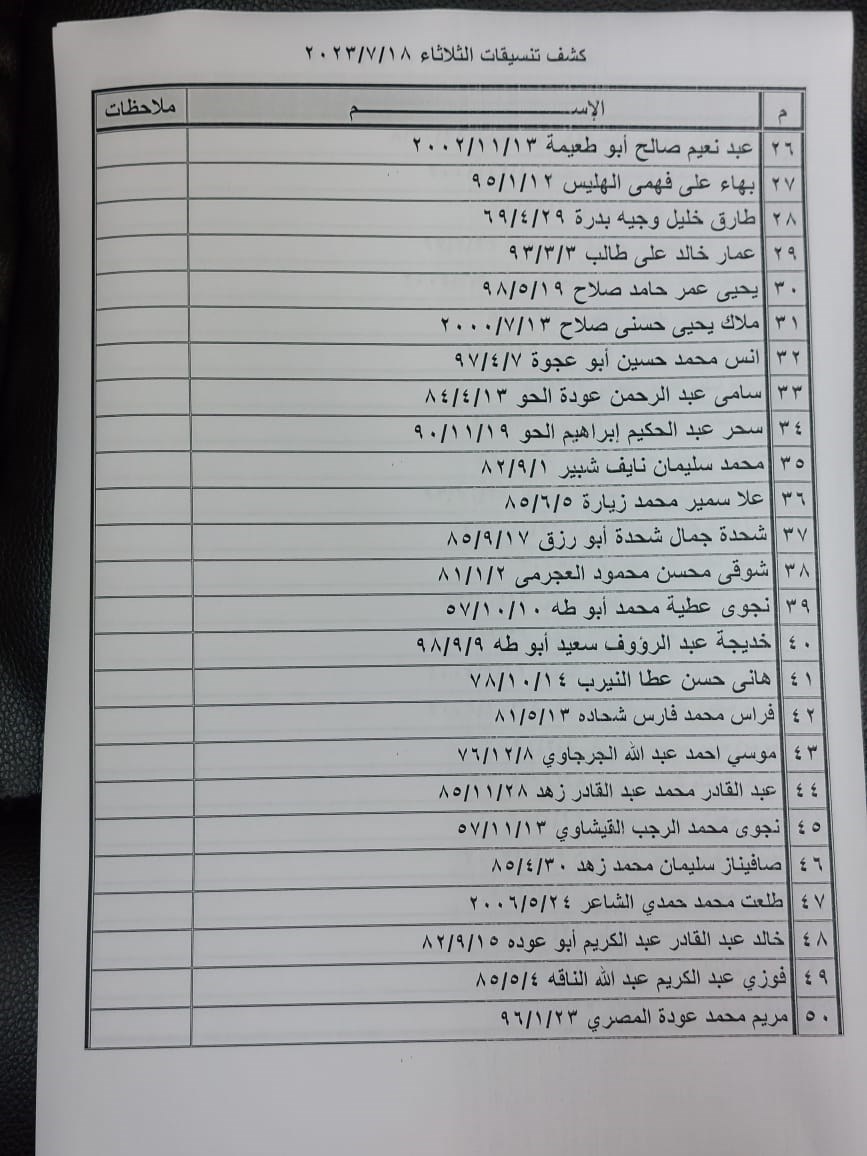 كشف تنسيقات الثلاثاء ٢٠٢٣/٧/١٨
م الإســـم ملاحظات
٢٦ عبد نعيم صالح أبو طعيمة ٢٠٠٢/١١/١٣
٢٧ بهاء على فهمى الهليس ٩٥/١/١٢
٢٨ طارق خليل وجيه بدرة ٦٩/٤/٢٩
٢٩ عمار خالد على طالب ٩٣/٣/٣
٣٠ يحيى عمر حامد صلاح ٩٨/٥/١٩
٣١ ملاك يحيى حسنى صلاح ٢٠٠٠/٧/١٣
٣٢ انس محمد حسين أبو عجوة ٩٧/٤/٧
٣٣ سامى عبد الرحمن عودة الحو ٨٤/٤/١٣
٣٤ سحر عبد الحكيم إبراهيم الحو ٩٠/١١/١٩
٣٥ محمد سليمان نايف شبير ٨٢/٩/١
٣٦ علا سمير محمد زيارة ٨٥/٦/٥
٣٧ شحدة جمال شحدة أبو رزق ٨٥/٩/١٧
٣٨ شوقى محسن محمود العجرمى ٨١/١/٢
٣٩ نجوى عطية محمد أبو طه ٥٧/١٠/١٠
٤٠ خديجة عبد الرؤوف سعيد أبو طه ٩٨/٩/٩
٤١ هانى حسن عطا النيرب ٧٨/١٠/١٤
٤٢ فراس محمد فارس شحاده ٨١/٥/١٣
٤٣ موسي احمد عبد الله الجرجاوي ٧٦/١٢/٨
٤٤ عبد القادر محمد عبد القادر زهد ٨٥/١١/٢٨
٤٥ نجوى محمد الرجب القيشاوي ٥٧/١١/١٣
٤٦ صافيناز سليمان محمد زهد ٨٥/٤/٣٠
٤٧ طلعت محمد حمدي الشاعر ٢٠٠٦/٥/٢٤
٤٨ خالد عبد القادر عبد الكريم أبو عوده ٨٢/٩/١٥
٤٩ فوزي عبد الكريم عبد الله الناقه ٨٥/٥/٤
٥٠ مريم محمد عودة المصري ٩٦/١/٢٣